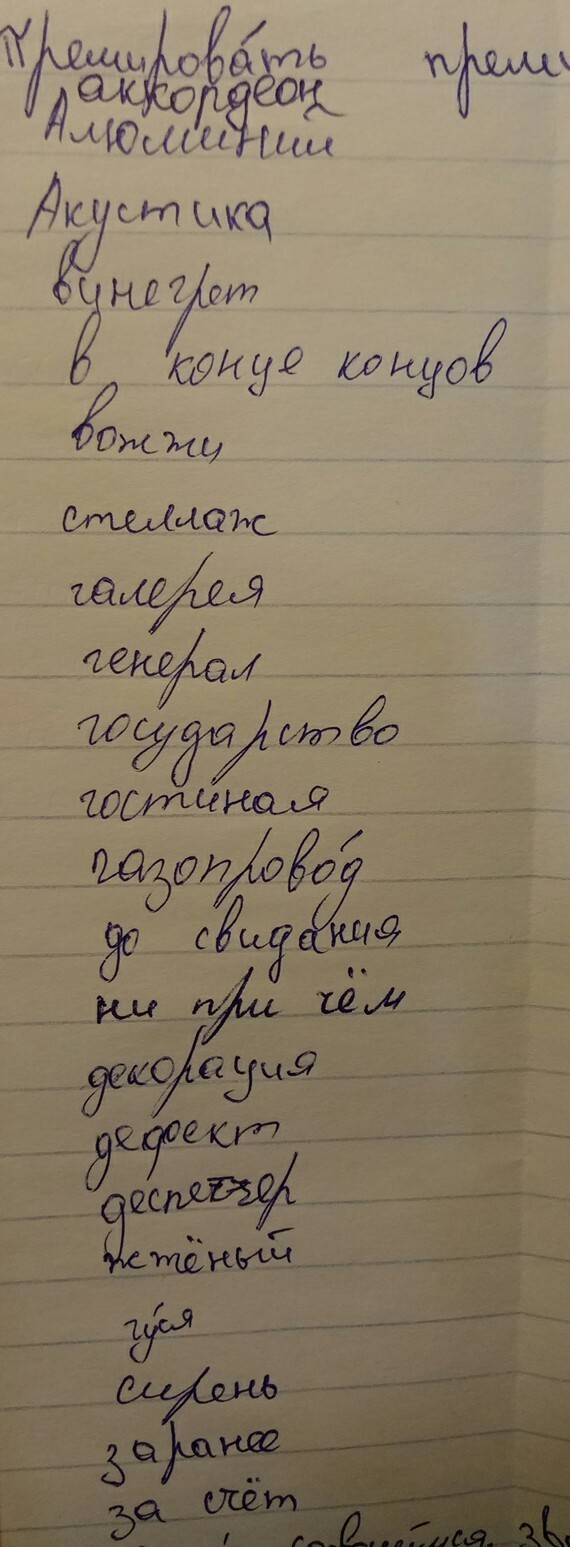 Премирова́ть преми
аккордеон
Алюминий
Акустика
винегрет
в конце концов
вожжи
стеллаж
галерея
генерал
государство
гостиная
газопрово́д
до свидания
ни при чём
декорация
дефект
деспетчер
жжёный
гу́ся
сирень
заранее
за счёт